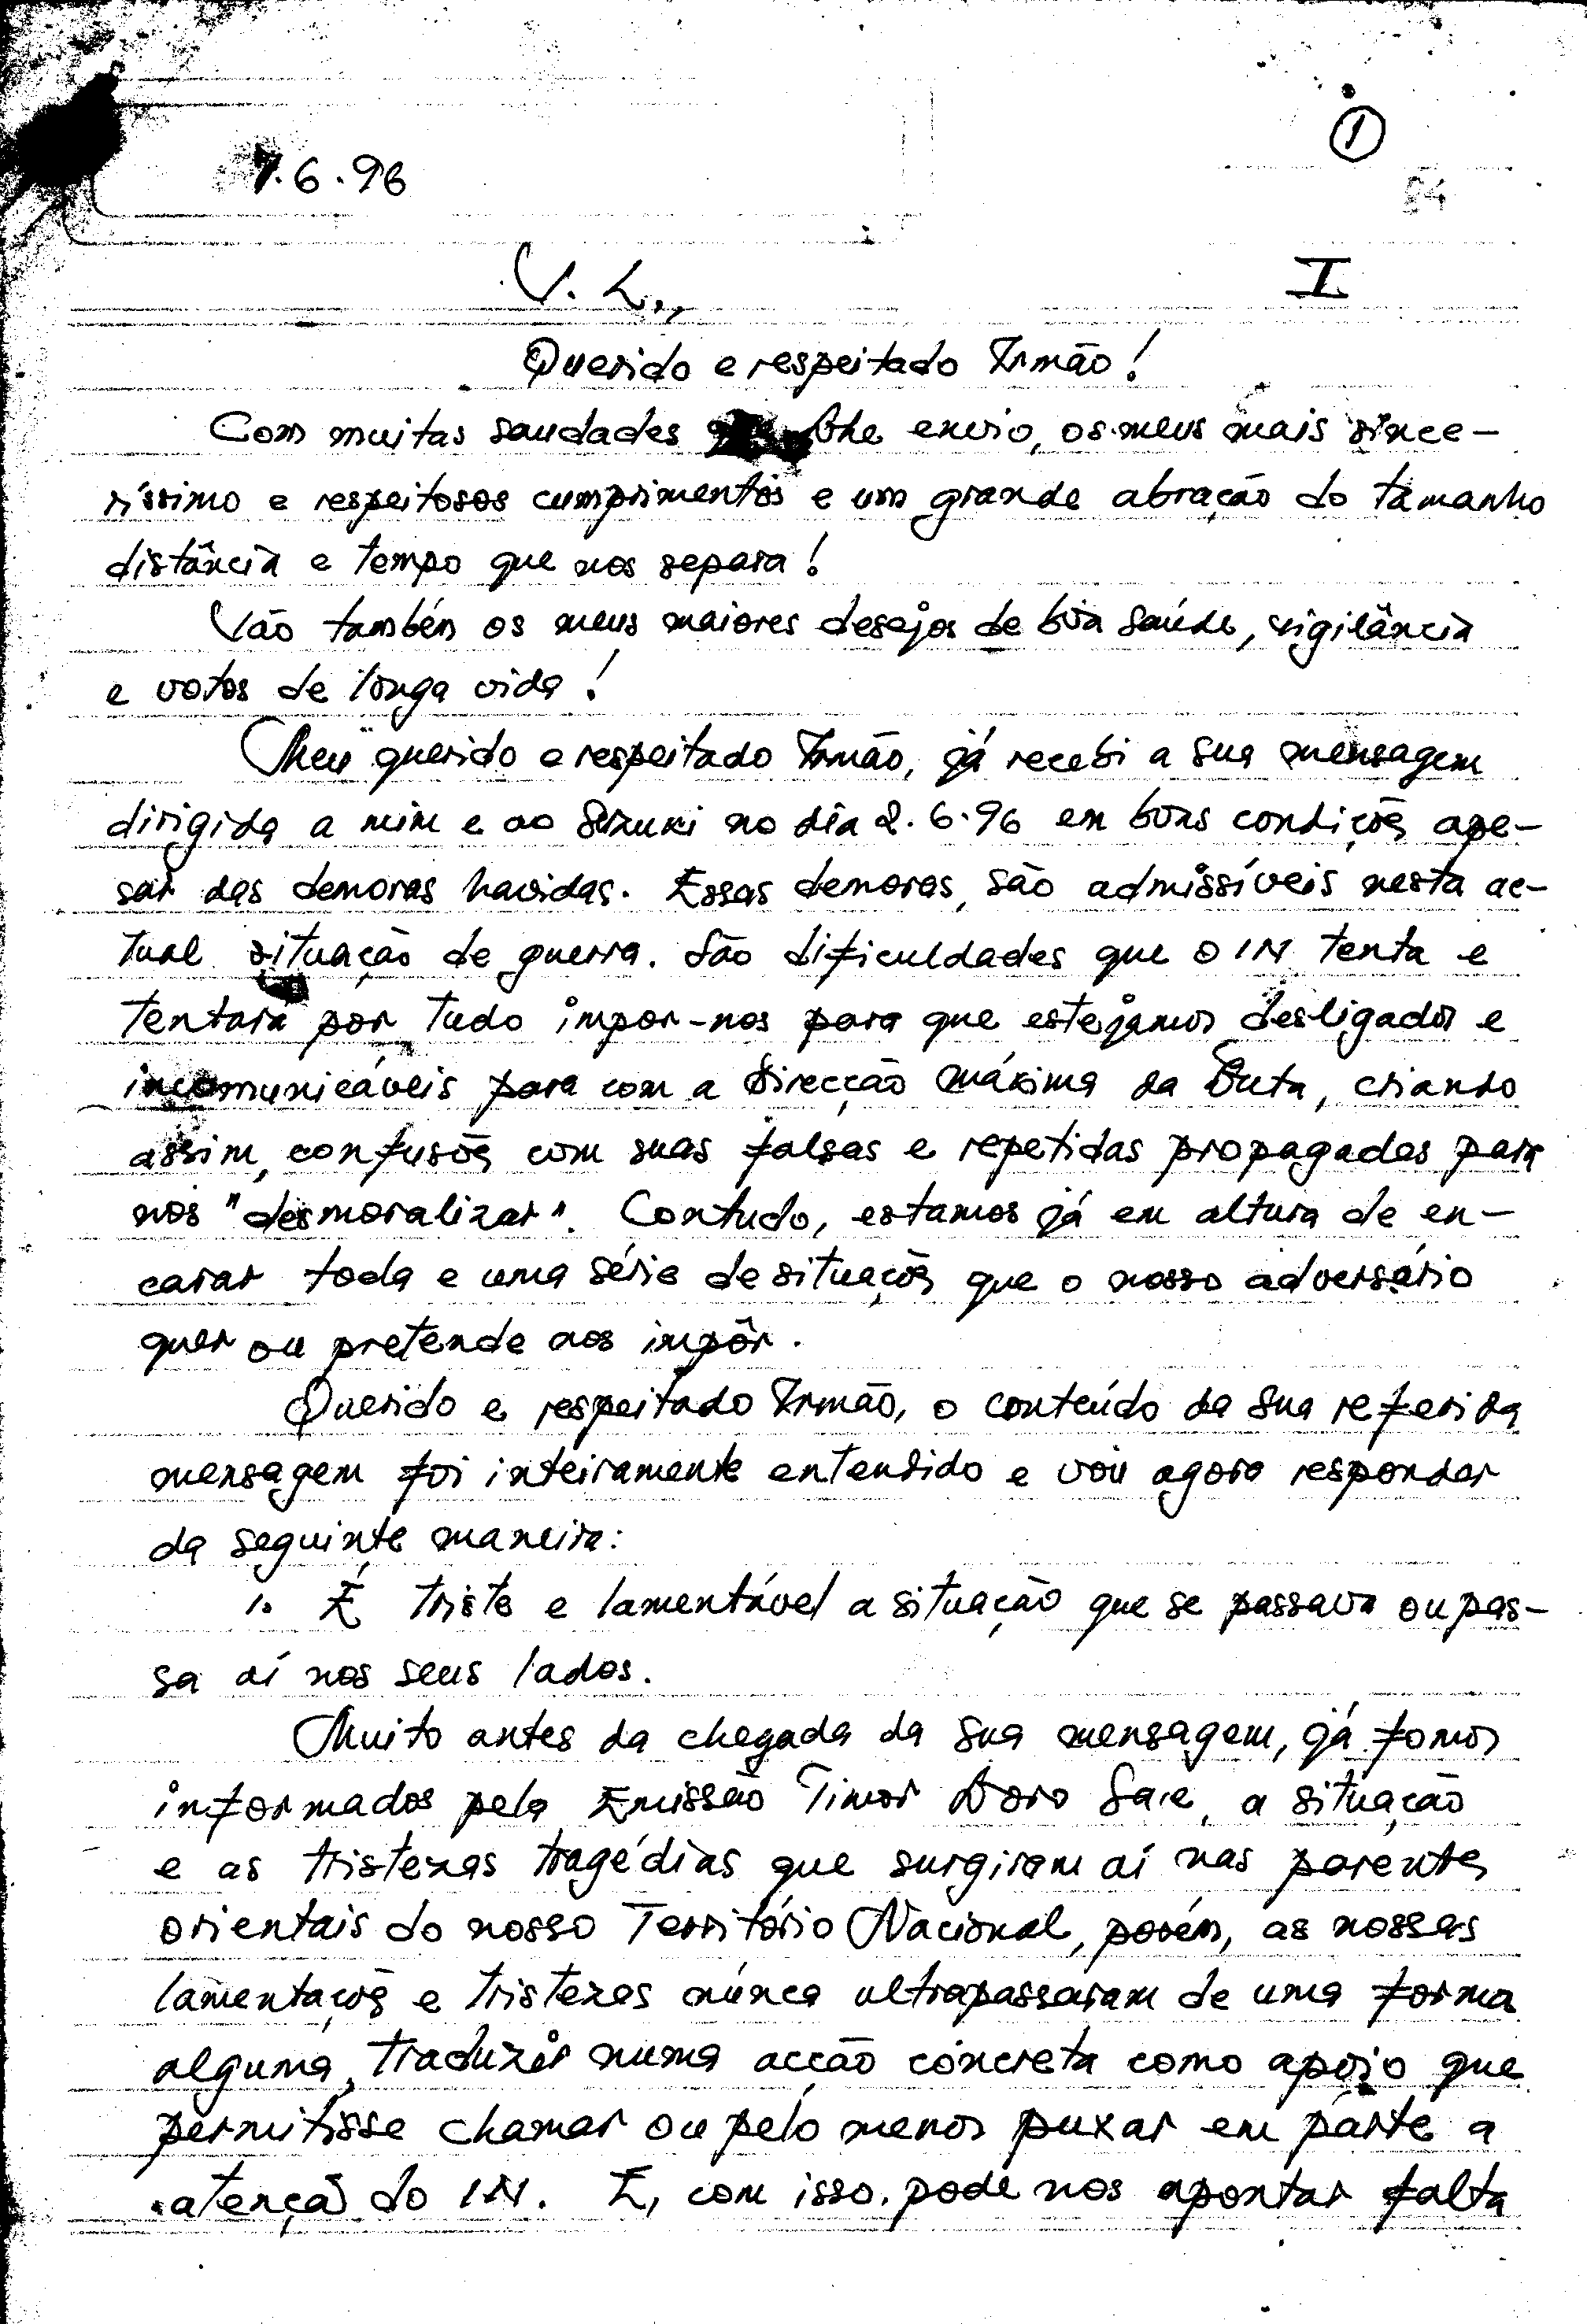 ①
7.6.96
84
V. L.,
I
Querido e respeitado Irmão!
Com muitas saudades lhe envio, os meus mais since-
ríssimo e respeitosos cumprimentos e um grande abração do tamanho
distância e tempo que nos separa!
Vão também os meus maiores desejos de boa saúde, vigilância
e votos de longa vida!
Meu querido e respeitado Irmão, já recebi a sua mensagem
dirigida a mim e ao Suzuki no dia 2.6.96 em boas condições ape-
sar das demoras havidas. Essas demoras, são admissíveis nesta ac-
tual situação de guerra. São dificuldades que o IN tenta e
tentará por tudo impor-nos para que estejamos desligados e
incomunicáveis para com a Direcção máxima da Luta, criando
assim, confusões com suas falsas e repetidas propagadas para
nos "desmoralizar". Contudo, estamos já em altura de en-
carar toda e uma série de situações que o nosso adversário
quer ou pretende nos impôr.
Querido e respeitado Irmão, o conteúdo da sua referida
mensagem foi inteiramente entendido e vou agora responder
da seguinte maneira:
1. É triste e lamentável a situação que se passava ou pas-
sa aí nos seus lados.
Muito antes da chegada da sua mensagem, já fomos
informados pela Emissão Timor Loro Sae, a situação
e as tristezas tragédias que surgiram aí nas parentes
orientais do nosso Território Nacional, porém, as nossas
lamentações e tristezas nunca ultrapassaram de uma forma
alguma, traduzir numa acção concreta como apoio que
permitisse chamar ou pelo menos puxar em parte a
atençã do IN. E, com isso, pode nos apontar falta